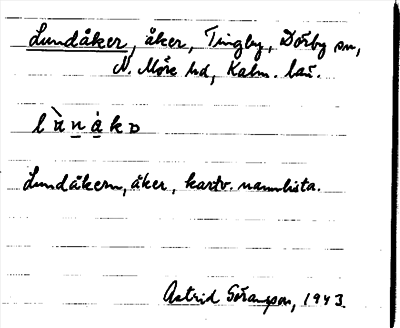 Lundåker, åker, Tingby, Dörby sn,
N. Möre hd, Kalm. län.
lùnåkɒ
Lundåkern, åker, kartv. namnlista.
Astrid Göransson, 1943.